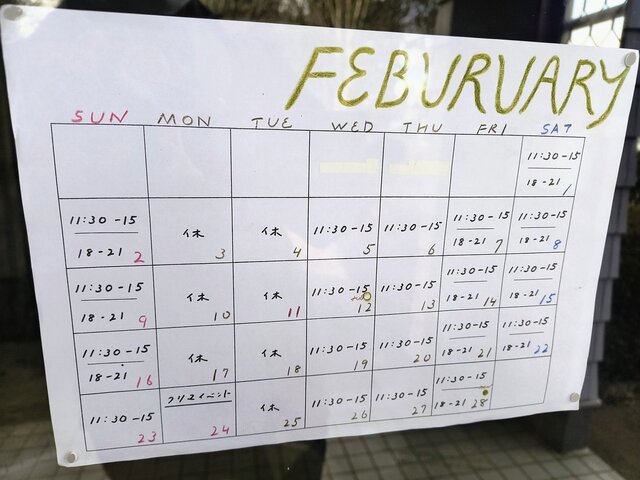 FEBURUARY
SUN MON TUE WED THU FRI SAT
11:30-15
18-21 1
11:30-15
18-21 2
休 3
休 4
11:30-15 5
11:30-15 6
11:30-15
18-21 7
11:30-15
18-21 8
11:30-15
18-21 9
休 10
休 11
11:30-15
12
11:30-15 13
11:30-15
18-21 14
11:30-15
18-21 15
11:30-15
18-21 16
休 17
休 18
11:30-15 19
11:30-15 20
11:30-15
18-21 21
11:30-15
18-21 22
11:30-15 23
24
休 25
11:30-15 26
11:30-15 27
11:30-15
18-21 28